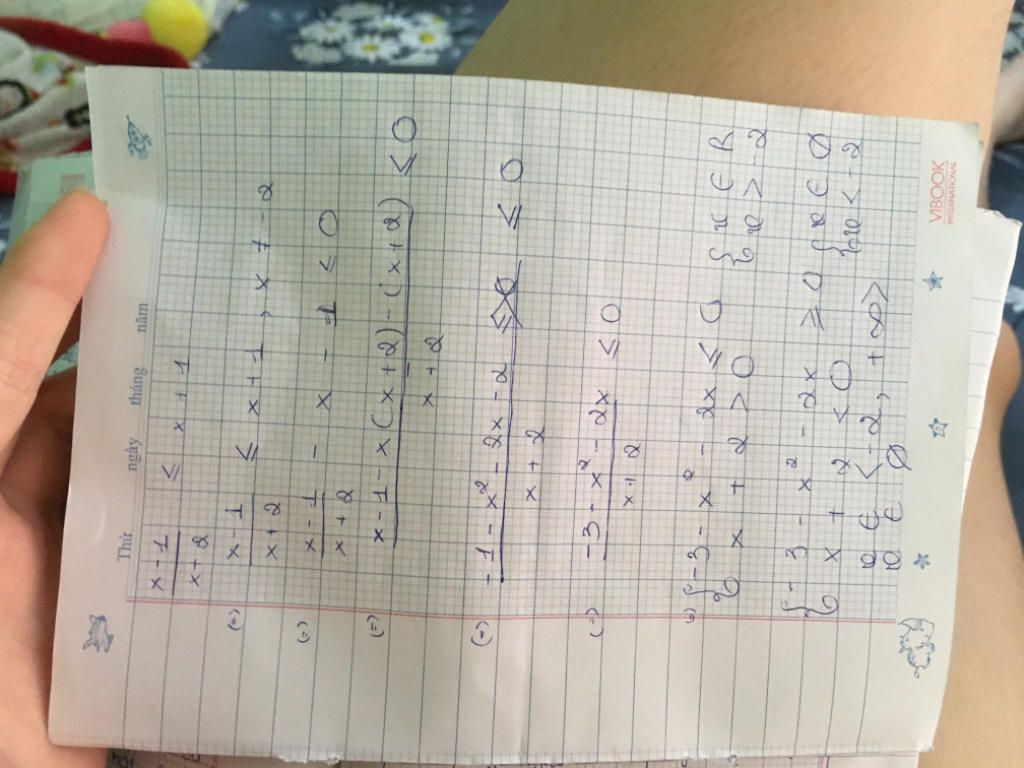 Thứ ngày tháng năm
x - 1 / x + 2 ≤ x + 1
(=) x - 1 / x + 2 ≤ x + 1, x ≠ -2
(=) x - 1 / x + 2 - x - 1 ≤ 0
(=) x - 1 - x(x + 2) - (x + 2) / x + 2 ≤ 0
(=) -1 - x² - 2x - 2 / x + 2 ≤ 0
(=) -3 - x² - 2x / x + 2 ≤ 0
(=) { -3 - x² - 2x ≤ 0 { x ∈ R
x + 2 > 0 x > -2
{ -3 - x² - 2x ≥ 0 { x ∈ ∅
x + 2 < 0 x < -2
x ∈ <-2, +∞>
x ∈ ∅
VIBOOK
INTERNATIONAL